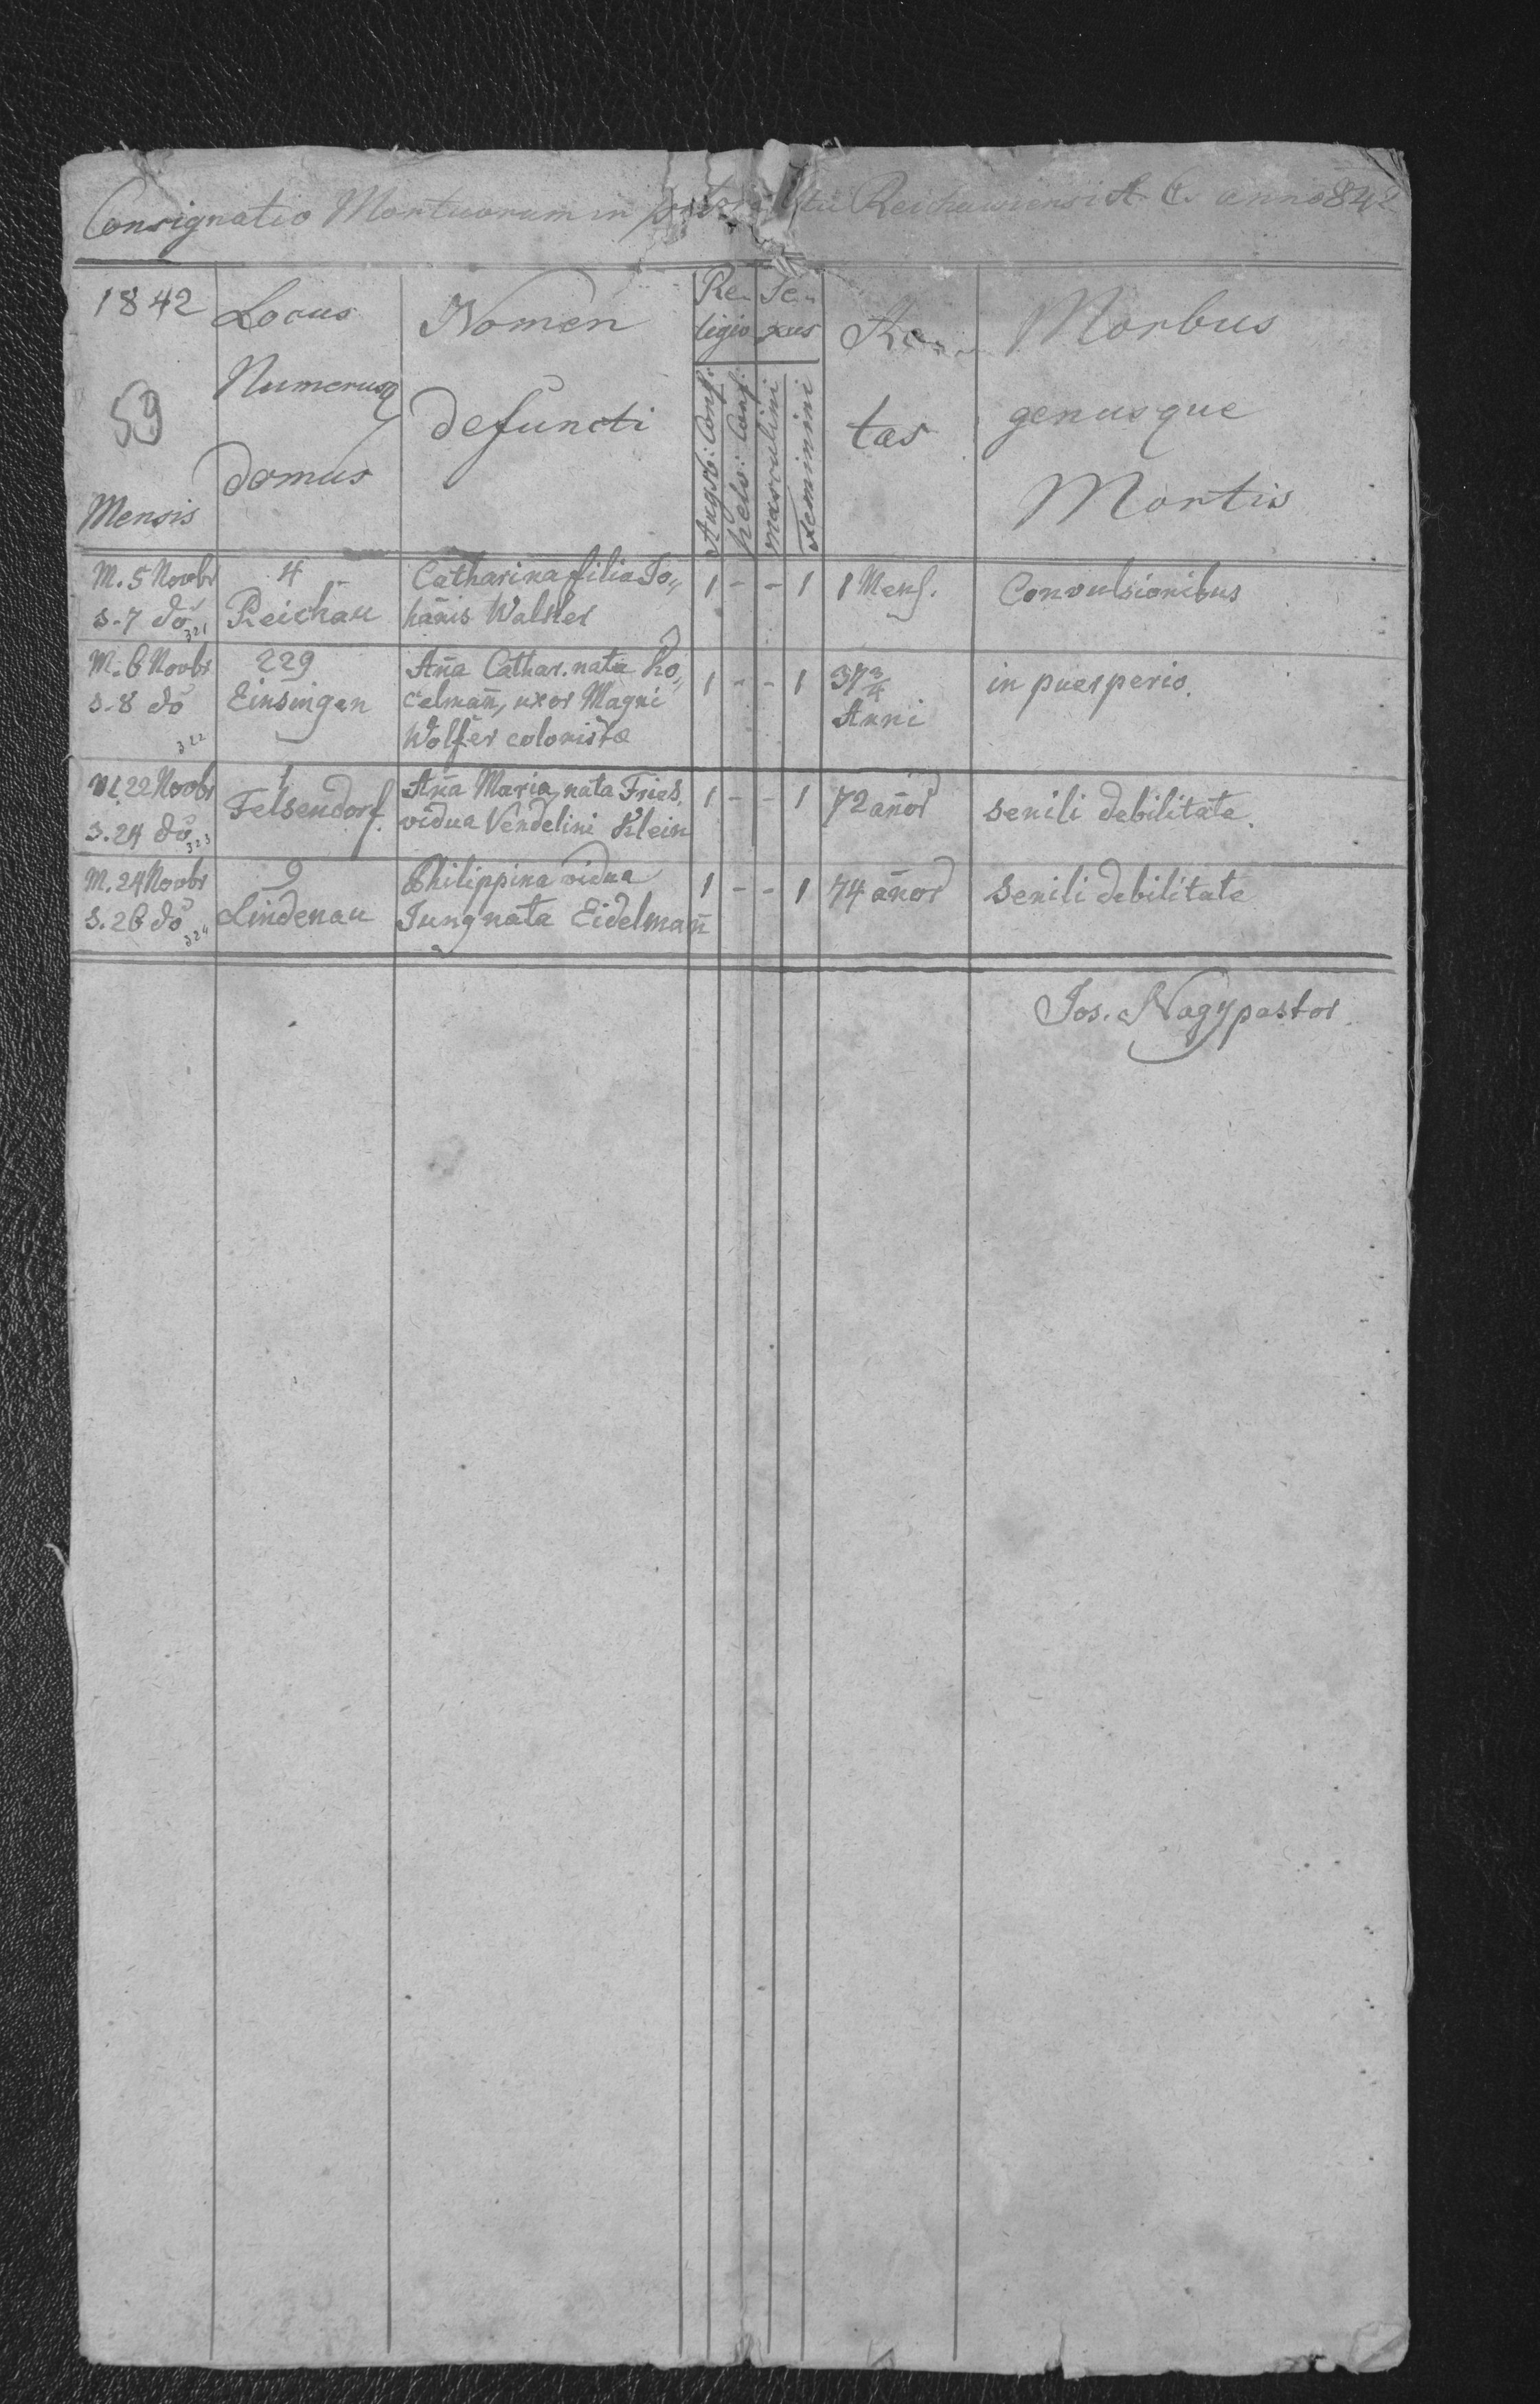 Consignatio Mortuorum in Reichauiensi A. C. anno 842
1842
59
Mensis
Locus
Numerusq
domus
Nomen
defuncti
Re-
ligio
Augst: Conf:
helv: Conf:
Se-
xus
masculini
feminini
Ae-
tas
Morbus
genusque
Mortis
M. 5 Novbr 4 Catharina filia Jo„ 1 - - 1 1 Mens. Convulsionibus
S. 7 do 321 Reichau hañis Walther
M. 6 Novbr 229 Aña Cathar. nata Ho„ 1 - - 1 37 3/4 in puerperio.
S. 8 do Einsingen celmañ, uxor Magni Anni
322 Wolfer colonistæ
M. 22 Novbr 1 Aña Maria, nata Fries, 1 - - 1 72 añor senili debilitate.
S. 24 do 323 Felsendorf. vidua Vendelini Klein
M. 24 Novbr 9 Philippina vidua 1 - - 1 74 añor senili debilitate
S. 26 do 324 Lindenau Jung nata Eidelmañ
Jos. Nagy pastor.